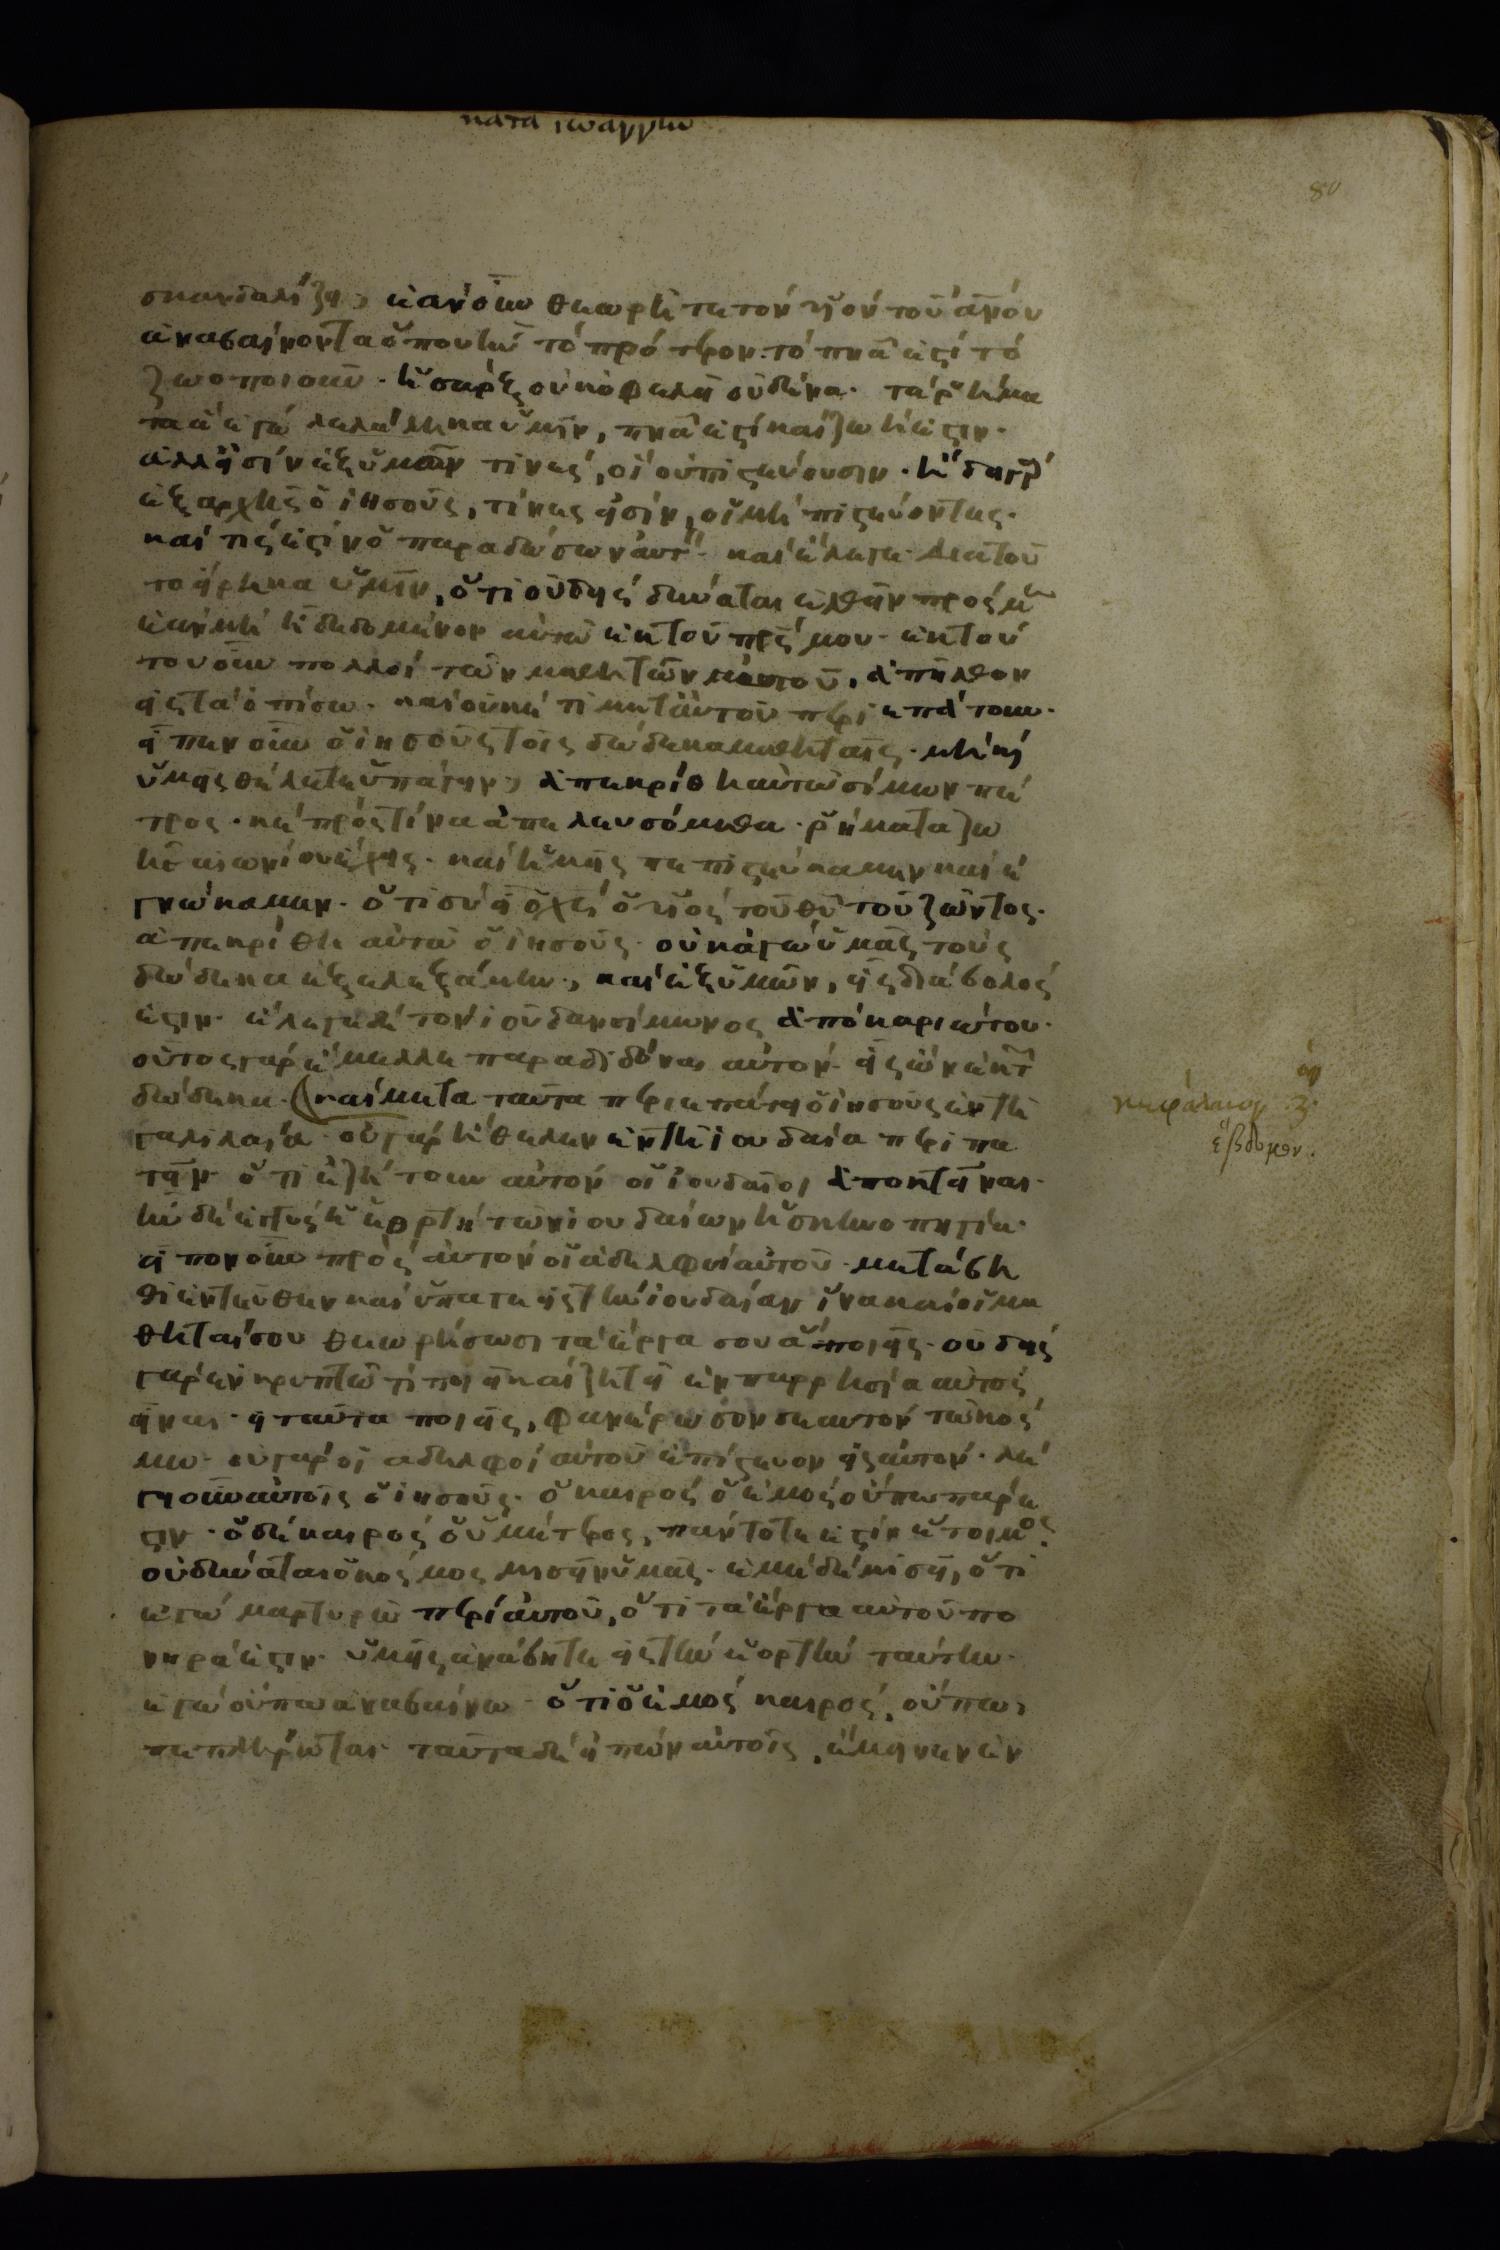 κατα ιωαννην
80
σκανδαλίζει; ἐὰν οὖν θεωρῆτε τὸν υἱὸν τοῦ ἀνου
ἀναβαίνοντα ὅπου ἦν τὸ πρότερον. τὸ πνα ἐστὶ τὸ
ζωοποιοῦν· ἡ σὰρξ οὐκ ὀφελεῖ οὐδένα· τὰ ῥήμα
τα ἃ ἐγὼ λελάληκα ὑμῖν, πνα ἐστὶ καὶ ζωή ἐστιν·
ἀλλ εἰσὶν ἐξ ὑμῶν τινὲς, οἳ οὐ πιστεύουσιν· ἤδει γὰρ
ἐξ αρχῆς ὁ ιησοῦς, τίνες εἰσὶν οἱ μὴ πιστεύοντες·
καὶ τίς ἐστὶν ὁ παραδώσων αὐτόν· καὶ ἔλεγε· διατοῦ
το εἴρηκα ὑμῖν, ὅτι οὐδεὶς δύναται ἐλθεῖν πρός με
ἐὰν μὴ ἦ δεδομένον αὐτῶ ἐκ τοῦ πρς μου· ἐκ τού
του οὖν πολλοὶ τῶν μαθητῶν αὐτοῦ, ἀπῆλθον
εἰς τὰ ὀπίσω· καὶ οὐκέτι μετ αὐτοῦ περιεπάτουν·
εἶπεν οὖν ὁ ιησοῦς τοῖς δώδεκα μαθηταῖς· μὴ καὶ
ὑμεῖς θέλετε ὑπάγειν; ἀπεκρίθη αὐτῶ σίμων πέ
τρος· κε πρὸς τίνα ἀπελευσόμεθα· ῥήματα ζω
ῆς αἰωνίου ἔχεις· καὶ ἡμεῖς πεπιστεύκαμεν καὶ ἐ
γνώκαμεν· ὅτι σὺ εἶ ὁ χς ὁ υἱὸς τοῦ θυ τοῦ ζῶντος·
ἀπεκρίθη αὐτῶ ὁ ιησοῦς· οὐκ ἐγὼ ὑμᾶς τοὺς
δώδεκα ἐξελεξάμην; καὶ ἐξ ὑμῶν, εἷς διάβολός
ἐστιν· ἔλεγε δὲ τὸν ιούδαν σίμωνος ἀπὸ καριώτου·
οὗτος γὰρ ἔμελλε παραδιδόναι αὐτόν· εἷς ὢν ἐκ τῶν
δώδεκα· καὶ μετα ταῦτα περιεπάτει ὁ ιησοῦς ἐν τῆ
γαλιλαία· οὐ γὰρ ἤθελεν ἐν τῆ ιουδαία περιπα
τεῖν· ὅτι ἐζήτουν αὐτὸν οἱ ιουδαῖοι ἀποκτεῖναι·
ἦν δὲ ἐγγὺς ἡ ἑορτὴ τῶν ιουδαίων ἡ σκηνοπηγία·
εἶπον οὖν πρὸς αὐτὸν οἱ ἀδελφοὶ αὐτοῦ· μετάβη
θι ἐντεῦθεν καὶ ὕπαγε εἰς τὴν ιουδαίαν ἵνα καὶ οἱ μα
θηταί σου θεωρήσωσι τὰ ἔργα σου ἃ ποιεῖς· οὐδεὶς
γὰρ ἐν κρυπτῶ τι ποιεῖ καὶ ζητεῖ ἐν παρρησία αὐτὸς
εἶναι· εἰ ταῦτα ποιεῖς, φανέρωσον σεαυτὸν τῶ κόσ
μω· οὐ γὰρ οἱ αδελφοὶ αὐτοῦ ἐπίστευον εἰς αὐτόν· λέ
γει οὖν αὐτοῖς ὁ ιησοῦς· ὁ καιρὸς ὁ ἐμὸς οὔπω πάρε
στιν· ὁ δὲ καιρὸς ὁ ὑμέτερος, πάντοτέ ἐστιν ἕτοιμος·
οὐ δύναται ὁ κόσμος μισεῖν ὑμᾶς· ἐμὲ δὲ μισεῖ, ὅτι
ἐγὼ μαρτυρῶ περὶ αὐτοῦ, ὅτι τὰ ἔργα αὐτοῦ πο
νηρά ἐστιν· ὑμεῖς ἀνάβητε εἰς τὴν ἑορτὴν ταύτην·
ἐγὼ οὔπω ἀναβαίνω· ὅτι ὁ ἐμὸς καιρὸς, οὔπω
πεπλήρωται· ταῦτα δὲ εἰπὼν αὐτοῖς, ἔμεινεν ἐν
κεφάλαιον ·ζ·
ἕβδομον.